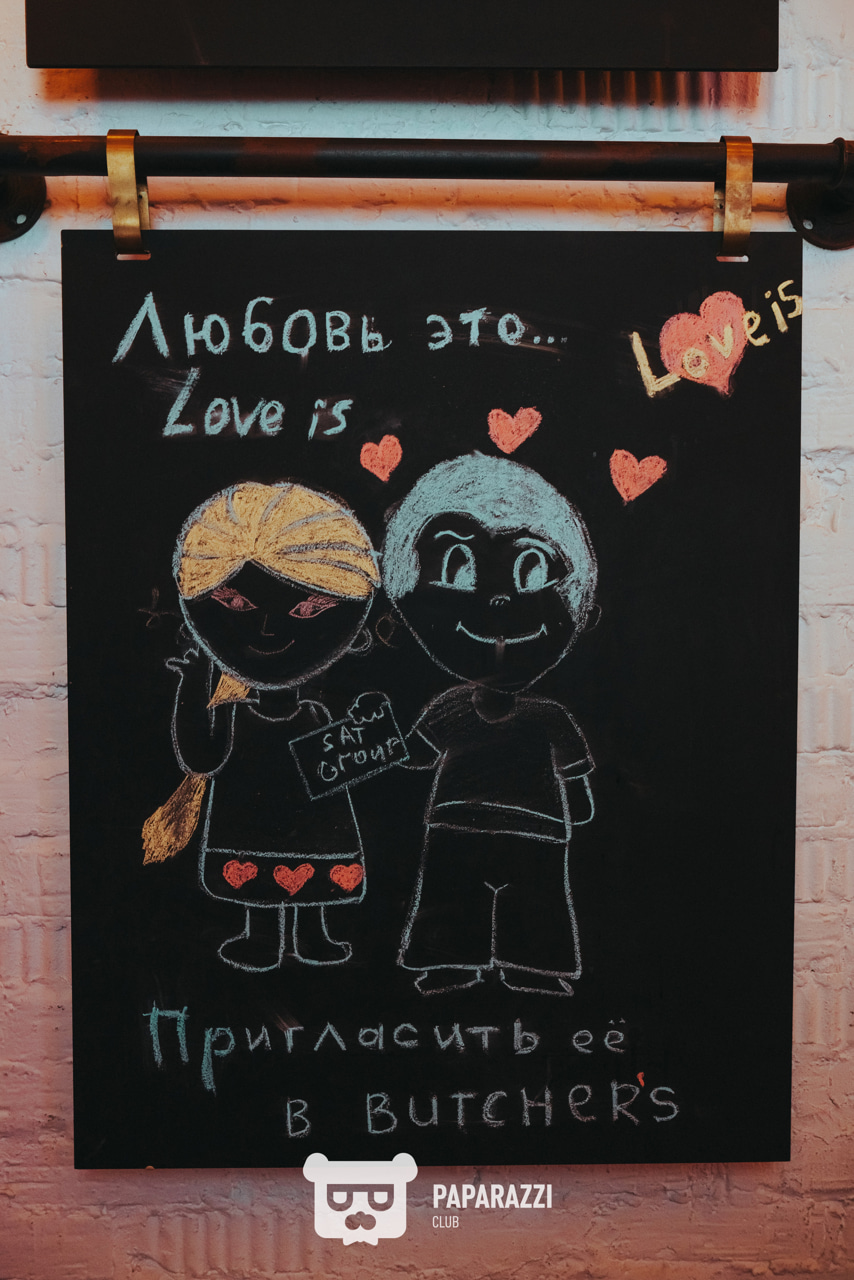 Любовь это...
Love is
Love is
SAT
Group
Пригласить её
в BUTCHER'S
PAPARAZZI
CLUB